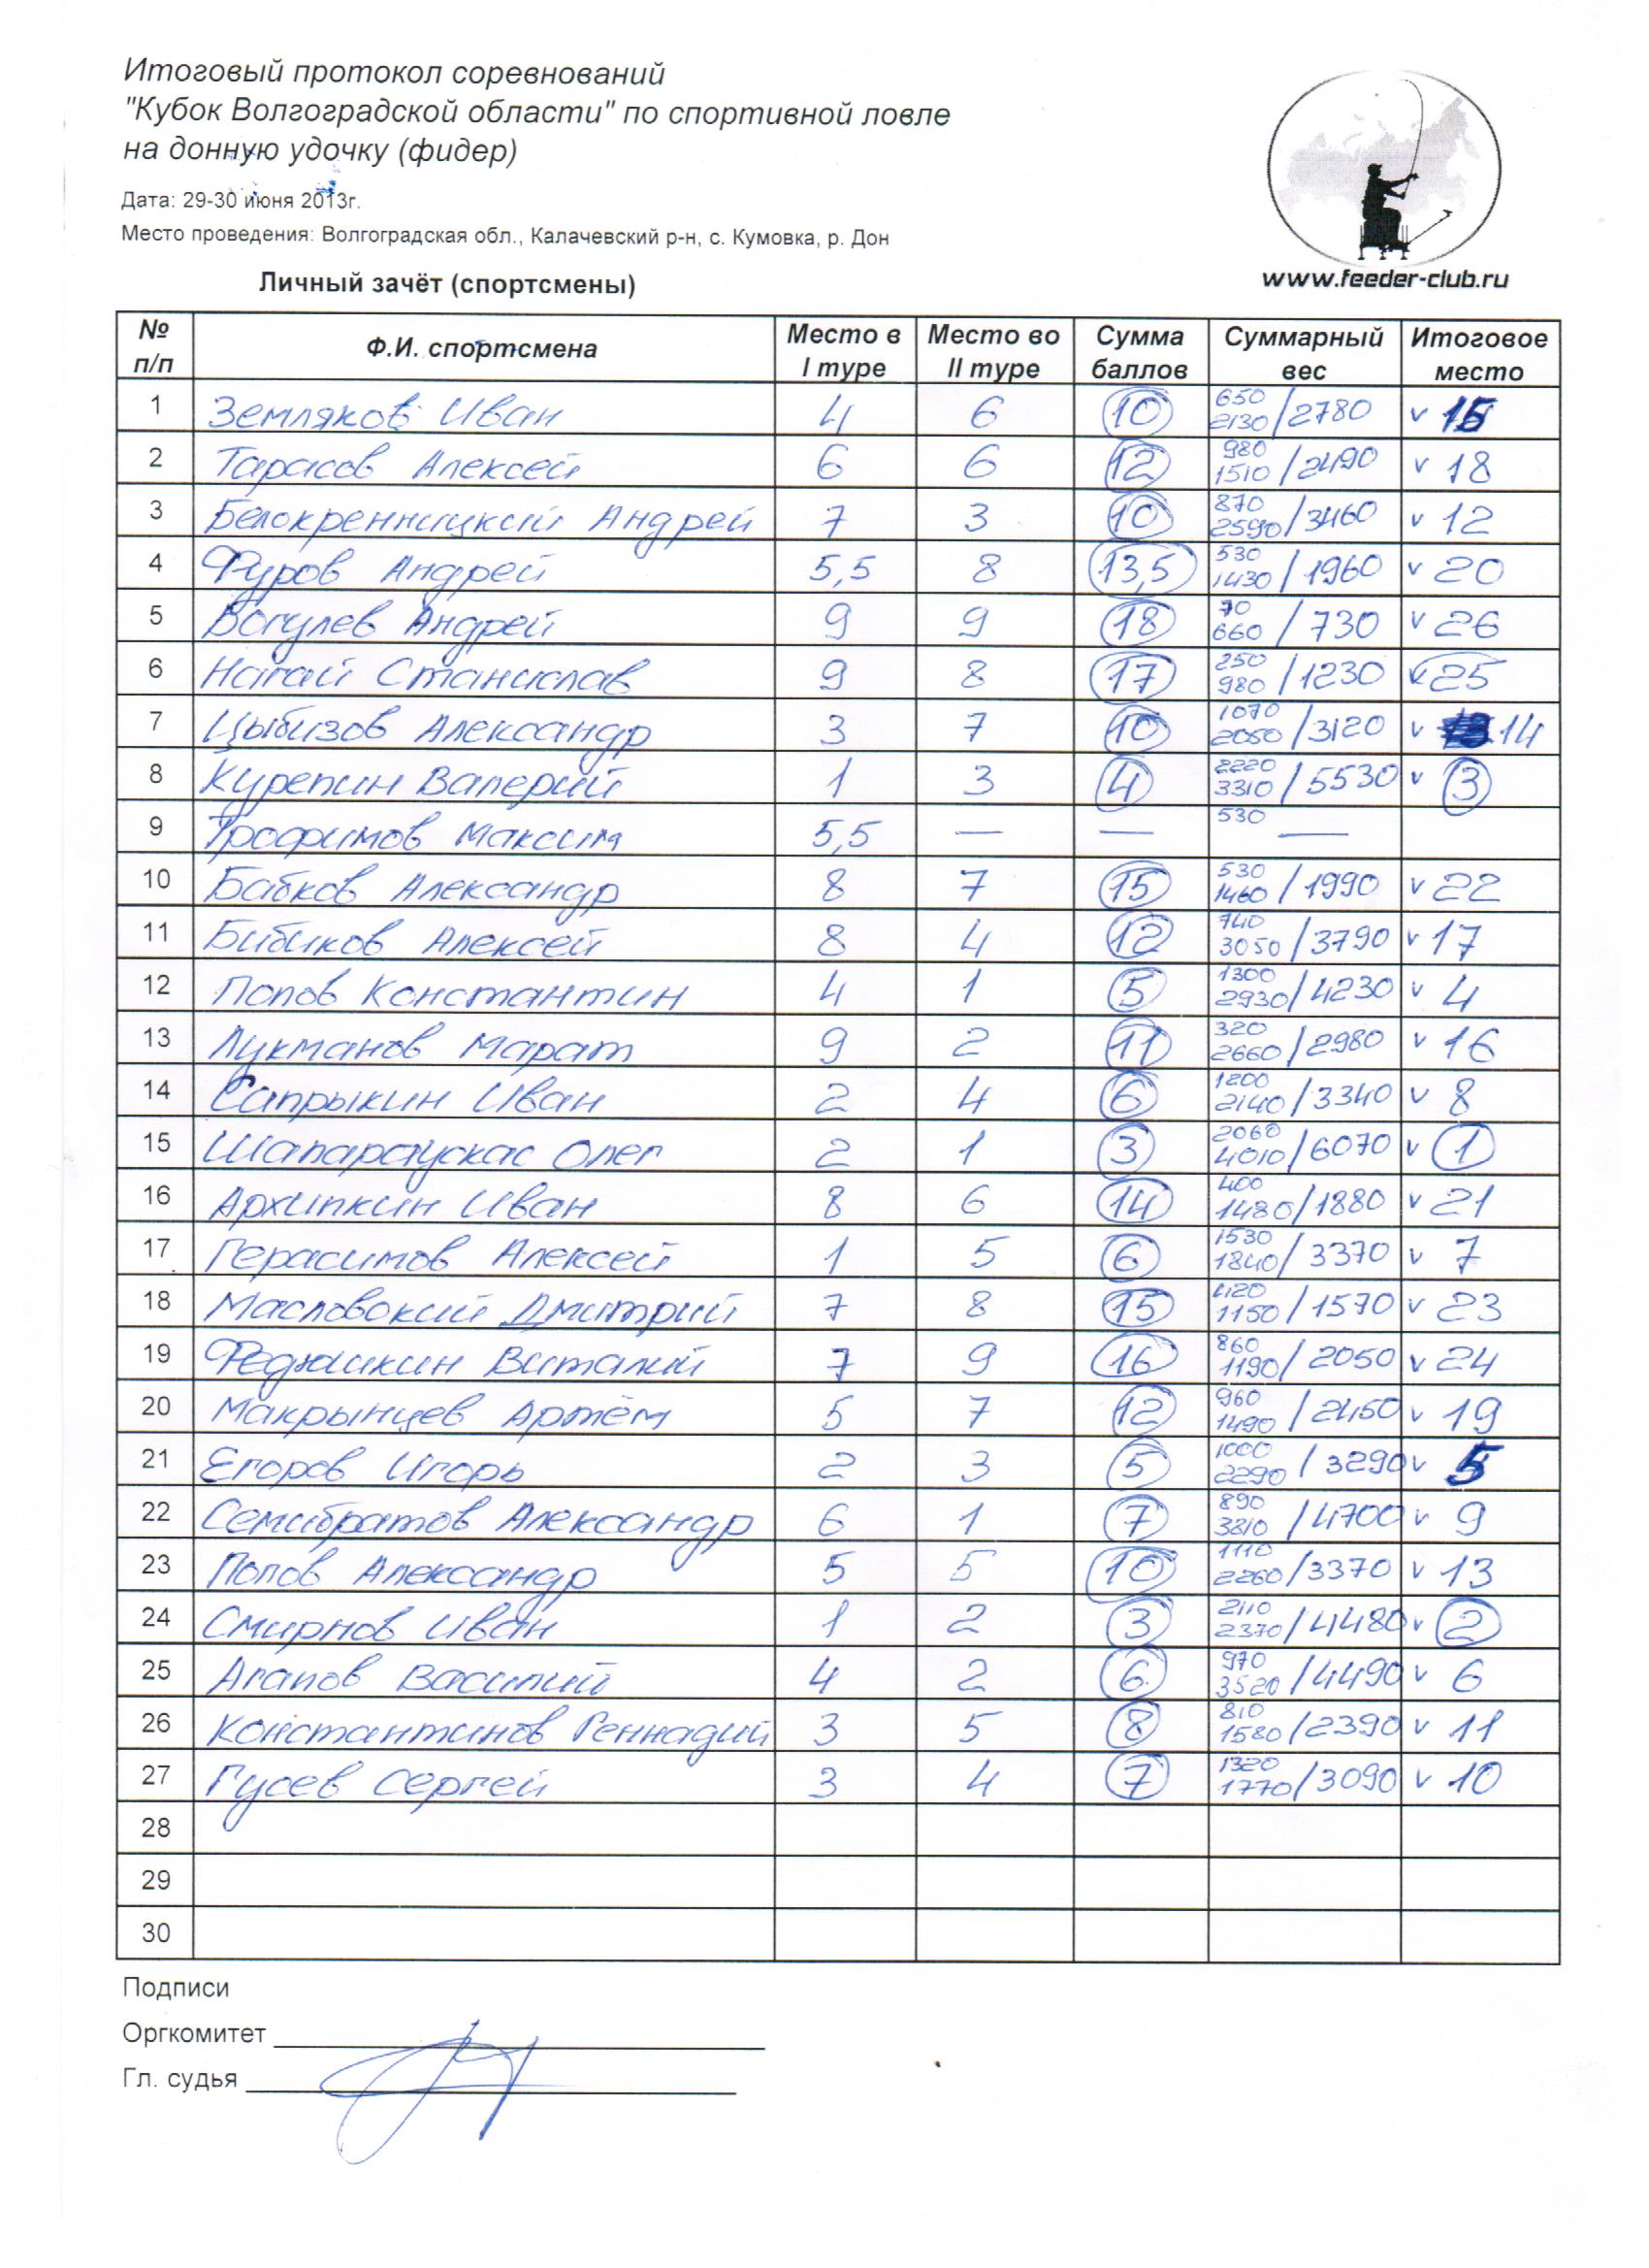 Итоговый протокол соревнований
"Кубок Волгоградской области" по спортивной ловле
на донную удочку (фидер)
Дата: 29-30 июня 2013г.
Место проведения: Волгоградская обл., Калачевский р-н, с. Кумовка, р. Дон
www.feeder-club.ru
Личный зачёт (спортсмены)
№ п/п Ф.И. спортсмена Место в I туре Место во II туре Сумма баллов Суммарный вес Итоговое место
1 Земляков Иван 4 6 10 650 2130/2780 v 15
2 Тарасов Алексей 6 6 12 980 1510/2490 v 18
3 Белокренницкий Андрей 7 3 10 870 2590/3460 v 12
4 Фуров Андрей 5,5 8 13,5 530 1430/1960 v 20
5 Вогулев Андрей 9 9 18 70 660/730 v 26
6 Нагай Станислав 9 8 17 250 980/1230 v 25
7 Цыбизов Александр 3 7 10 1070 2050/3120 v 14
8 Курепин Валерий 1 3 4 2220 3310/5530 v 3
9 Трофимов Максим 5,5 — — 530 —
10 Бабков Александр 8 7 15 530 1460/1990 v 22
11 Бибиков Алексей 8 4 12 740 3050/3790 v 17
12 Попов Константин 4 1 5 1300 2930/4230 v 4
13 Лукманов Марат 9 2 11 320 2660/2980 v 16
14 Сапрыкин Иван 2 4 6 1200 2140/3340 v 8
15 Шапараускас Олег 2 1 3 2060 4010/6070 v 1
16 Архипкин Иван 8 6 14 400 1480/1880 v 21
17 Герасимов Алексей 1 5 6 1530 1840/3370 v 7
18 Масловский Дмитрий 7 8 15 420 1150/1570 v 23
19 Федюшкин Виталий 7 9 16 860 1190/2050 v 24
20 Макрынцев Артём 5 7 12 960 1490/2450 v 19
21 Егоров Игорь 2 3 5 1000 2290/3290 v 5
22 Семибратов Александр 6 1 7 890 3810/4700 v 9
23 Попов Александр 5 5 10 1110 2260/3370 v 13
24 Смирнов Иван 1 2 3 2110 2370/4480 v 2
25 Агапов Василий 4 2 6 970 3520/4490 v 6
26 Константинов Геннадий 3 5 8 810 1580/2390 v 11
27 Гусев Сергей 3 4 7 1320 1770/3090 v 10
28
29
30
Подписи
Оргкомитет
Гл. судья